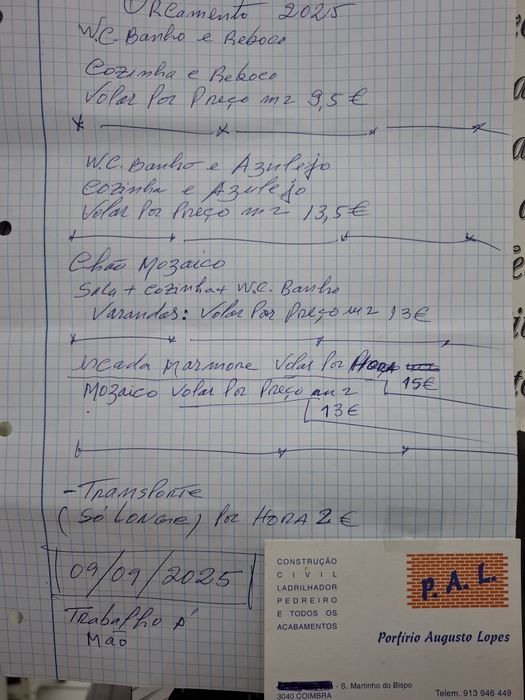 Orçamento 2025
W.C. Banho e Reboco
Cozinha e Reboco
Valor Por Preço m2 9,5€
W.C. Banho e Azulejo
Cozinha e Azulejo
Valor Por Preço m2 13,5€
Chão Mozaico
Sala + Cozinha + W.C. Banho
Varandas: Valor Por Preço m2 13€
escada Marmore Valor Por HORA
15€
Mozaico Valor Por Preço m2
13€
- Transporte
(Só LONGE) Por HORA 2€
09/09/2025
Trabalho á
Mão
CONSTRUÇÃO
CIVIL
LADRILHADOR
PEDREIRO
E TODOS OS
ACABAMENTOS
P.A.L.
Porfírio Augusto Lopes
- S. Martinho do Bispo
3040 COIMBRA
Telem. 913 946 449